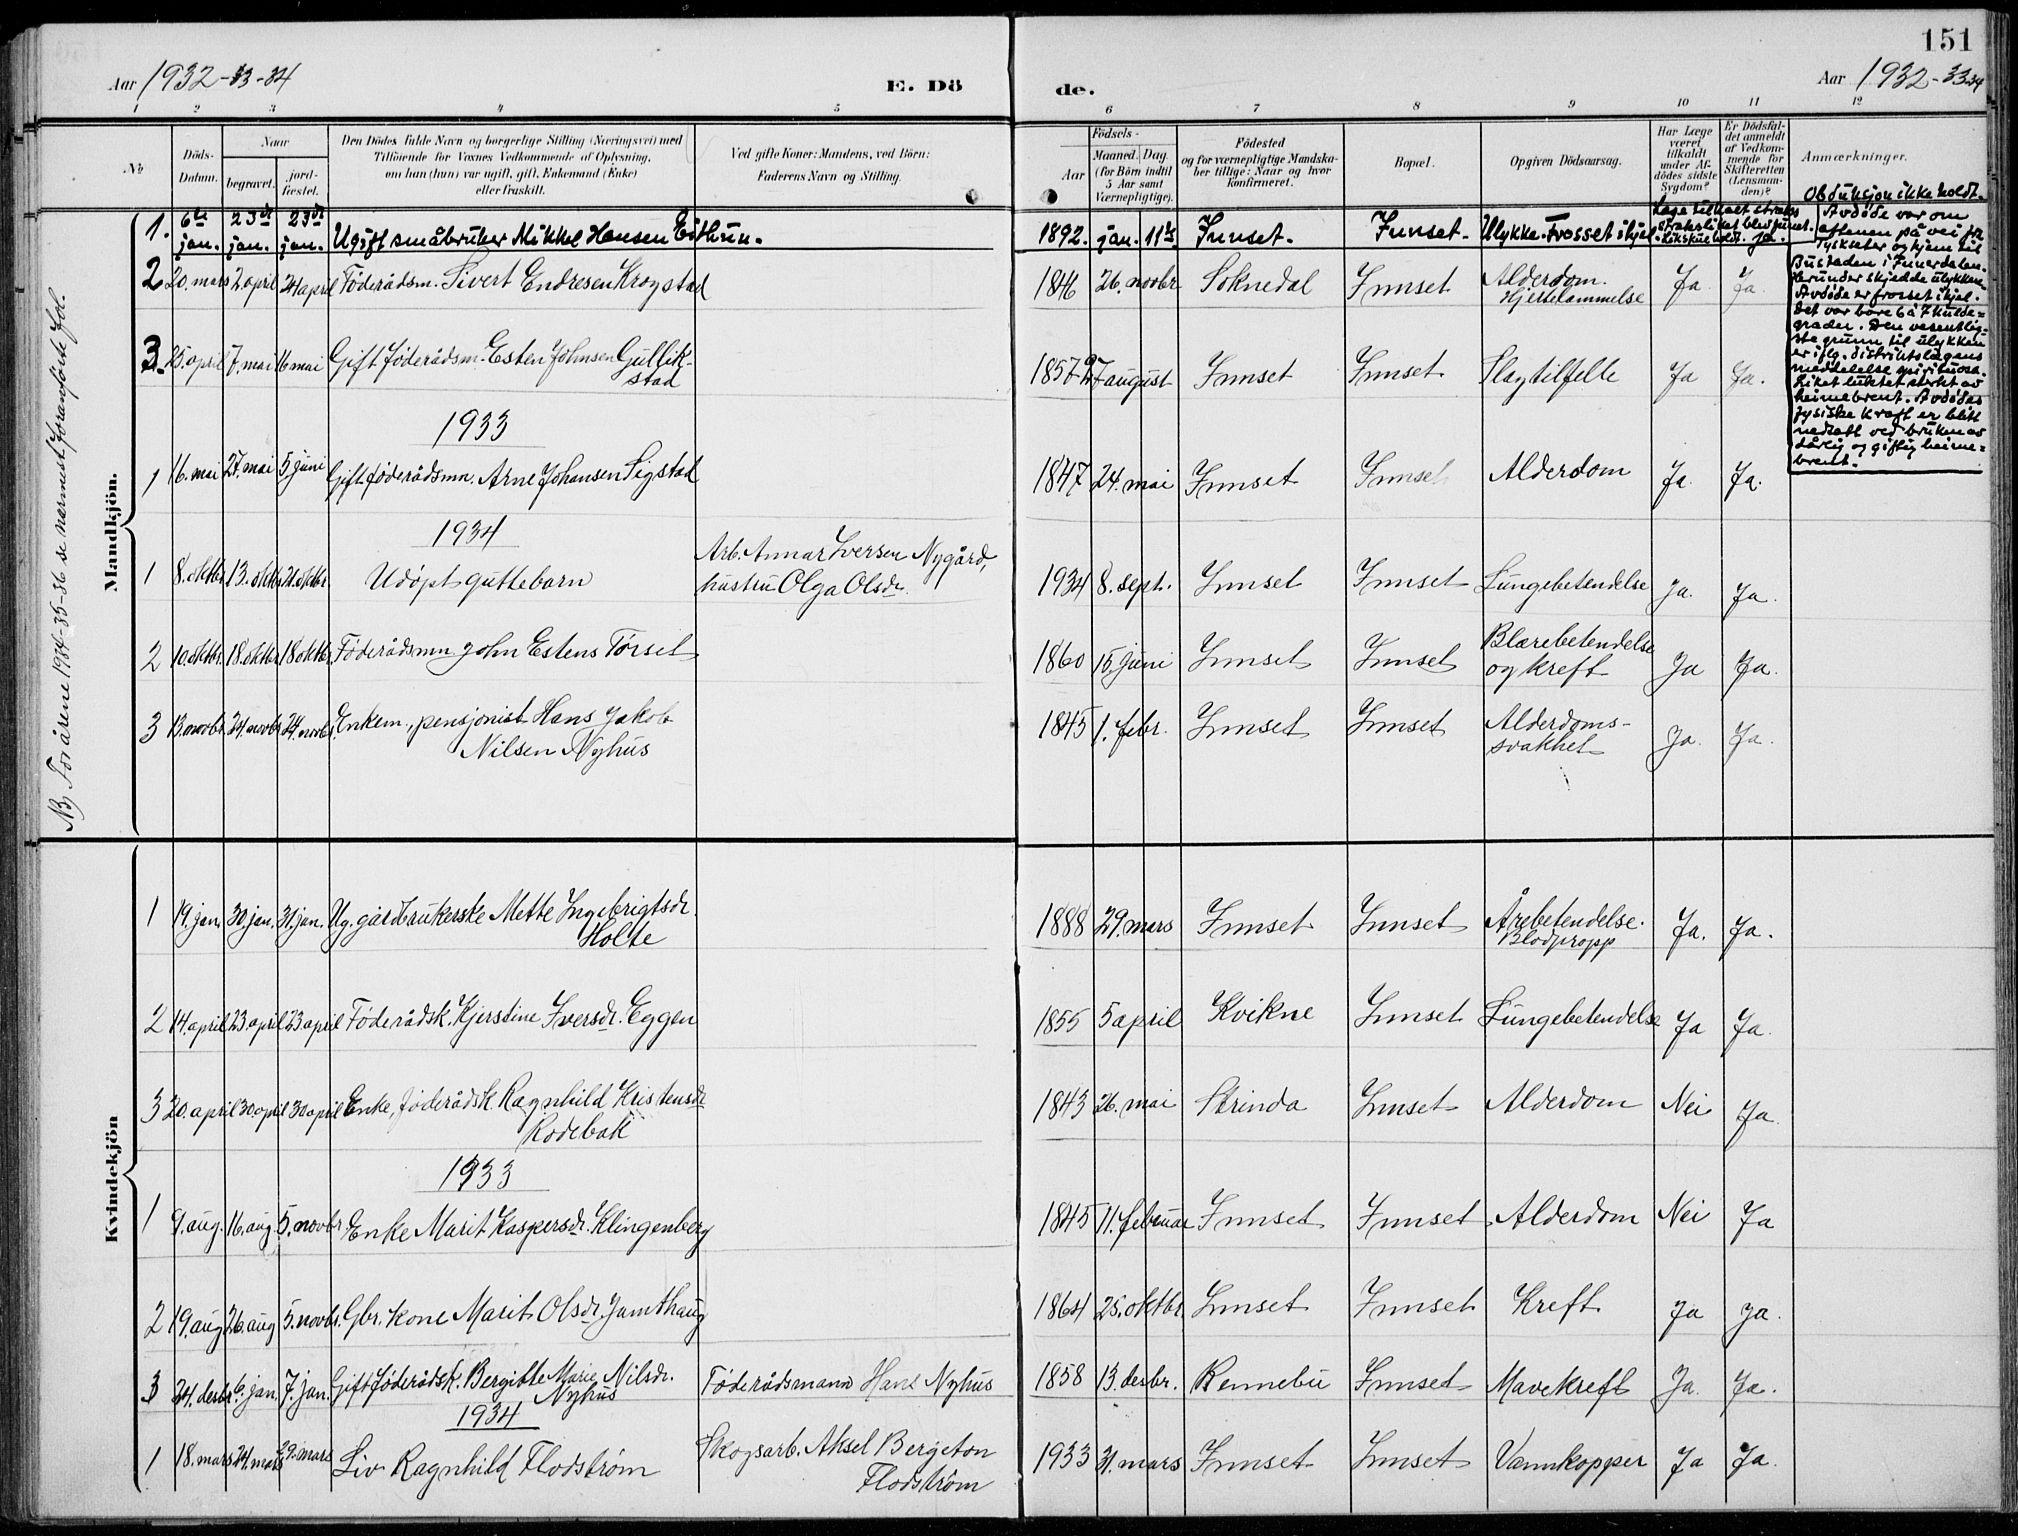 151
Aar 1932-33-34
E. Dö
de.
Aar 1932-33-34
1 2 3 4 5 6 7 8 9 10 11 12
No
Döds-
Datum.
Naar
begravet.
jord-
fæstet.
Den Dödes fulde Navn og borgerlige Stilling (Næringsvei) med
Tilföiende for Voxnes Vedkommende af Oplysning,
om han (hun) var ugift, gift, Enkemand (Enke)
eller fraskilt.
Ved gifte Koner: Mandens, ved Börn:
Faderens Navn og Stilling.
Födsels-
Aar
Maaned. Dag
(for Börn indtil
5 Aar samt
Værnepligtige).
Födested
og for værnepligtige Mandska-
ber tillige: Naar og hvor
konfirmeret.
Bopæl.
Opgiven Dödsaarsag.
Har Læge
været
tilkaldt
under Af-
dödes sidste
Sygdom?
Er Dödsfal-
det anmeldt
af Vedkom-
mende for
Skifteretten
(Lensman-
den)?
Anmærkninger.
Mandkjön.
NB. For årene 1934-35-36 se nærmest foranførte fol.
1. 6te jan. 23de jan. 23de jan. Ugift småbruker Mikkel Hansen Eithun. 1892. jan. 11te Innset. Innset. Ulykke. Frosset ihjel.
Ja.
Obduksjon ikke holdt.
Avdöde var om
aftenen på vei fra
Tyskseter og hjem til
Bustaden i Innerdalen.
Herunder skjedde ulykken
Avdöde er frosset ihjel.
Det var bare 6 à 7 kulde=
grader. Den vesentlig-
ste grunn til ulykken
er iflg. distriktslægens
meddelelse spirituosa.
Liket luktet sterkt av
heimebrent. Avdödes
fysiske kraft er blitt
nedsatt ved bruken av
dårlig og giftig heime=
brent.
2 20. mars 2. april 24 april Föderådsm. Sivert Endresen Krogstad 1846 26. novbr. Soknedal Innset Alderdom. Hjertelammelse Ja Ja
3. 25. april 7. mai 16 mai Gift föderådsm. Esten Johnsen Gullik-
stad 1857 27 august Innset Innset Slagtilfelle Ja Ja.
1933
1 16. mai 27. mai 5 juni Gift föderådsmn. Arne Johansen Sigstad 1847 24. mai Innset Innset Alderdom Ja. Ja.
1934
1 8. oktbr. 13. oktbr. 21. oktbr. Udöpt guttebarn Arb. Annar Iversen Nygård,
hustru Olga Olsdr. 1934 8. sept. Innset Innset Lungebetendelse Ja. Ja.
2 10. oktbr. 18. oktbr. 18 oktbr. Föderådsmn John Estens Törset 1860 15 juni Innset Innset Blærebetendelse
og kreft Ja Ja.
3 13. novbr. 24. novbr. 24. novbr. Enkem., pensjonist Hans Jakob
Nilsen Nyhus 1845 1. febr. Innset Innset Alderdoms-
svakhet Ja. Ja.
Kvindekjön
1 19. jan. 30. jan. 31. jan. Ug. gårdbrukerske Mette Ingebrigtsdr.
Holte 1888 29. mars Innset Innset Årebetendelse.
Blodpropp Ja. Ja.
2 14. april 23. april 23 april Föderådsk. Kjersdine Iversdr. Eggen 1855 5 april Kvikne Innset Lungebetendelse Ja Ja.
3 20. april 30. april 30 april Enke, föderådsk. Ragnhild Kristensdr
Rodebak 1843 26. mai Strinda Innset Alderdom Nei Ja.
1933
1 9. aug. 16. aug. 5. novbr Enke Marit Kaspersdr. Klingenberg 1845 11. februar Innset Innset Alderdom Nei Ja
2 19. aug 26. aug 5. novbr. Gbr. kone Marit Olsdr. Jamthaug 1864 25. oktbr. Innset Innset Kreft Ja Ja.
3 24. desbr. 6. jan. 7. jan. Gift föderådsk. Bergitte Marie Nilsdr.
Nyhus Föderådsmann Hans Nyhus 1858 13. desbr. Rennebu Innset Mavekreft Ja. Ja.
1934
1 18. mars 24. mars 29. mars Liv Ragnhild Flodström Skogsarb. Aksel Bergeton
Flodström 1933 31. mars Innset Innset Vannkopper Ja Ja.